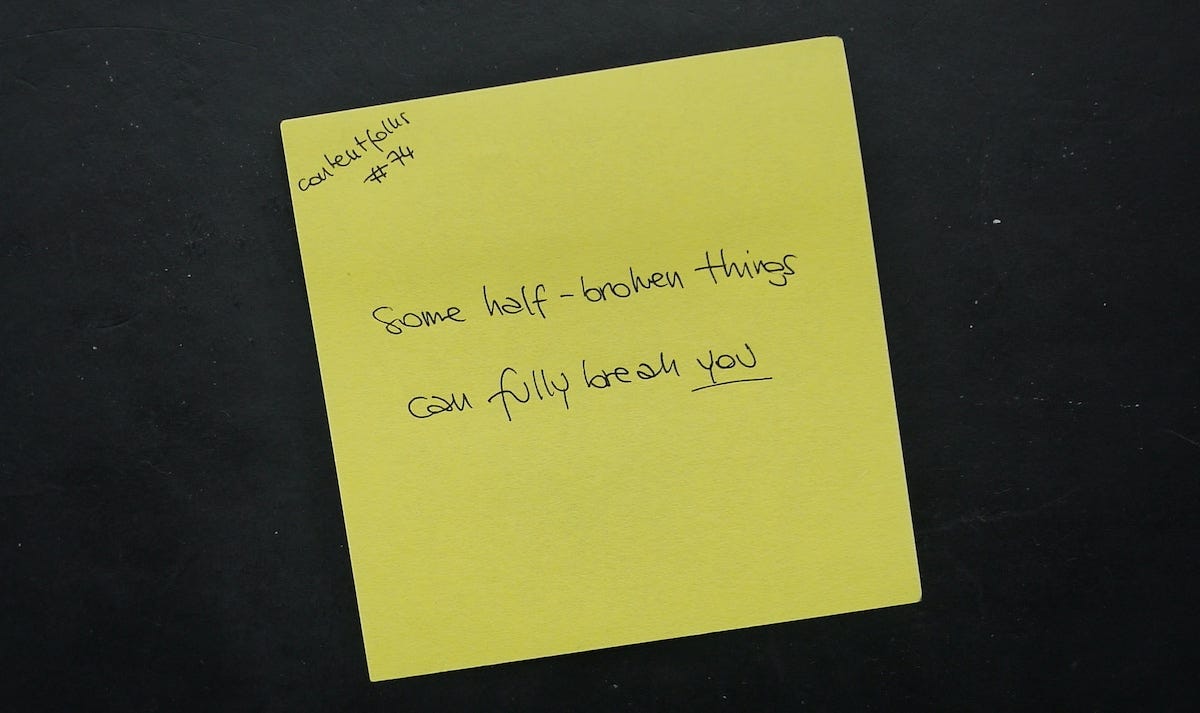 contentfolks
#74
Some half-broken things
can fully break you